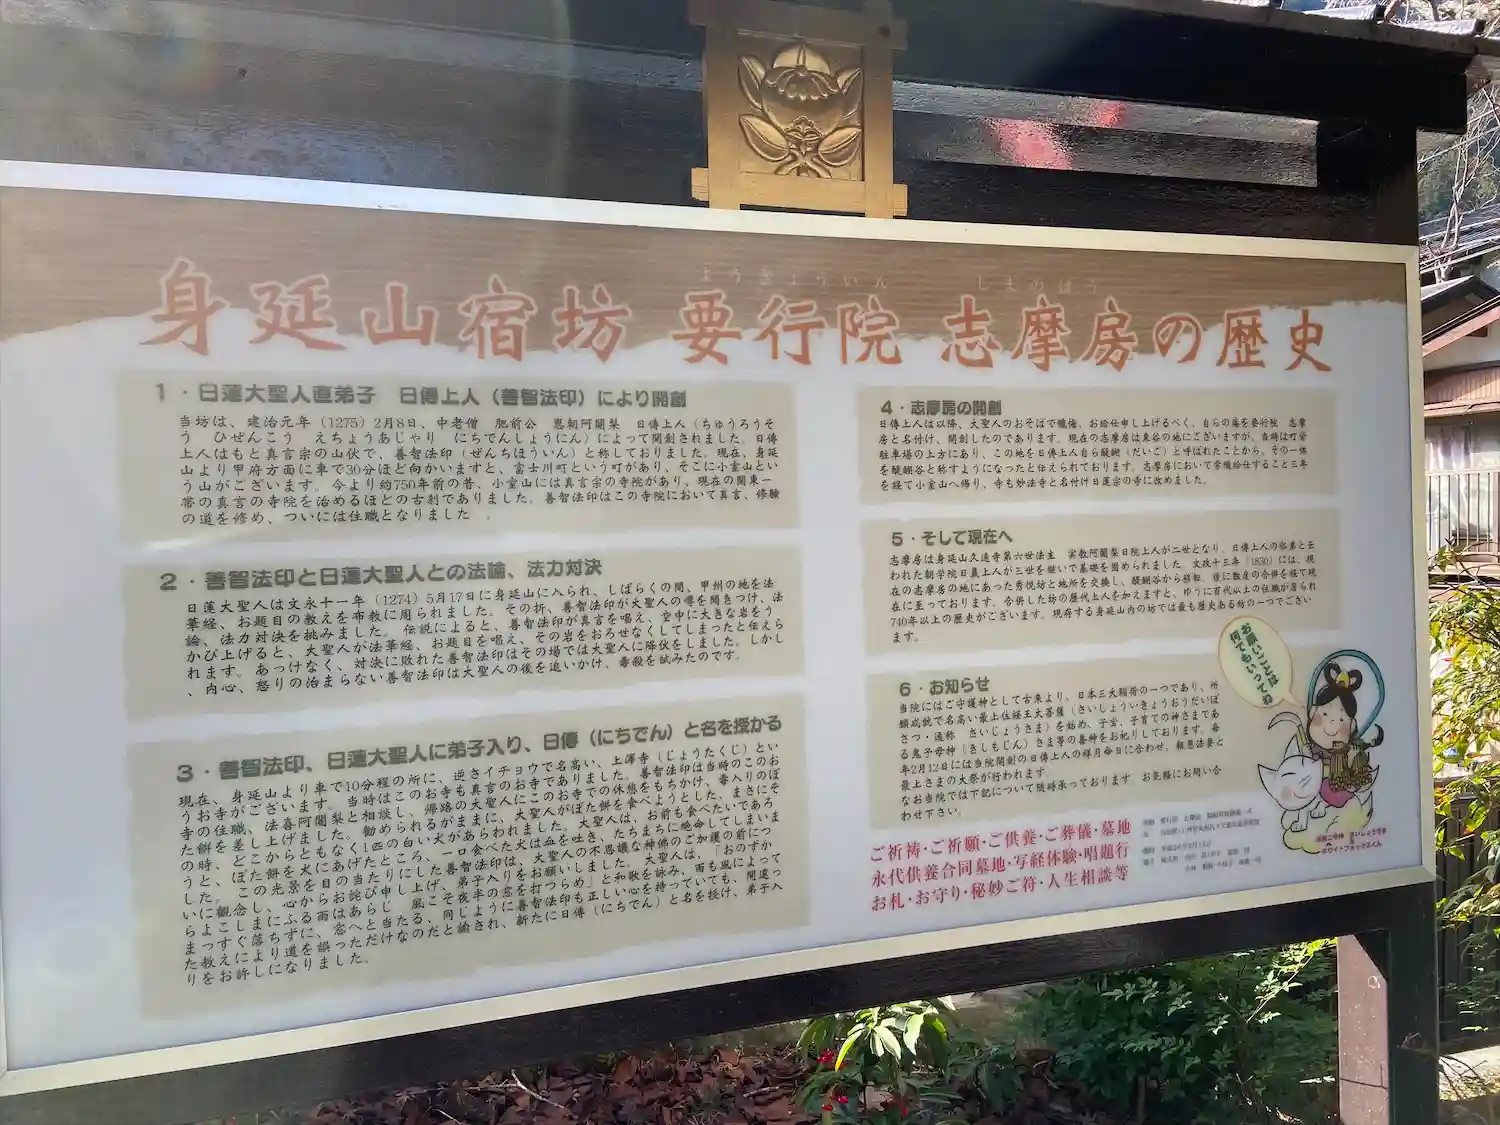 ようぎょういん しまのぼう
身延山宿坊 要行院 志摩房の歴史
1・日蓮大聖人直弟子 日傳上人（善智法印）により開創
当坊は、建治元年（1275）2月8日、中老僧 肥前公 恵朝阿闍梨 日傳上人（ちゅうろうそ
う ひぜんこう えちょうあじゃり にちでんしょうにん）によって開創されました。日傳
上人はもと真言宗の山伏で、善智法印（ぜんちほういん）と称しておりました。現在、身延
山より甲府方面に車で30分ほど向かいますと、富士川町という町があり、そこに小室山とい
う山がございます。今より約750年前の昔、小室山には真言宗の寺院があり、現在の関東一
帯の真言の寺院を治めるほどの古刹でありました。善智法印はこの寺院において真言、修験
の道を修め、ついには住職となりました 。
2・善智法印と日蓮大聖人との法論、法力対決
日蓮大聖人は文永十一年（1274）5月17日に身延山に入られ、しばらくの間、甲州の地を法
華経、お題目の教えを布教に周られました。その折、善智法印が大聖人の噂を聞きつけ、法
論、法力対決を挑みました。伝説によると、善智法印が真言を唱え、空中に大きな岩をう
かび上げると、大聖人が法華経、お題目を唱え、その岩をおろせなくしてしまったと伝えら
れます。あっけなく、対決に敗れた善智法印はその場では大聖人に降伏をしました。しかし
、内心、怒りの治まらない善智法印は大聖人の後を追いかけ、毒殺を試みたのです。
3・善智法印、日蓮大聖人に弟子入り、日傳（にちでん）と名を授かる
現在、身延山より車で10分程の所に、逆さイチョウで名高い、上澤寺（じょうたくじ）とい
うお寺がございます。当時はこのお寺も真言のお寺でありました。善智法印は当時のこのお
寺の住職、法喜阿闍梨と相談し、帰路の大聖人にこのお寺での休憩をもちかけ、毒入りのぼ
た餅を差し上げました。勧められるがままに、大聖人がぼた餅を食べようとした、まさにそ
の時、どこからともなく1匹の白い犬があらわれました。大聖人は、お前も食べたいであろ
うと、ぼた餅を犬にあげたところ、一口食べた犬は血を吐き、たちまちに絶命してしまいま
した。この光景を目の当たりにした善智法印は、大聖人の不思議な神佛のご加護の前につ
いに観念し、心からお詫び申し上げ、弟子入りをお願いしました。大聖人は、「おのずか
らよこしまにふる雨はあらじ 風こそ夜半の窓を打つらめ」と和歌を詠み、雨も風によって
まっすぐ落ちずに、窓へと当たる、同じように善智法印も正しい心を持っていても、間違っ
た教えにより道を誤っただけなのだと諭され、新たに日傳（にちでん）と名を授け、弟子入
りをお許しになりました。
4・志摩房の開創
日傳上人は以降、大聖人のおそばで懺悔、お給仕申し上げるべく、自らの庵を要行院 志摩
房と名付け、開創したのであります。現在の志摩房は東谷の地にございますが、当時は町営
駐車場の上方にあり、この地を日傳上人自ら醍醐（だいご）と呼ばれたことから、その一体
を醍醐谷と称すようになったと伝えられております。志摩房において常随給仕すること三年
を経て小室山へ帰り、寺も妙法寺と名付け日蓮宗の寺に改めました。
5・そして現在へ
志摩房は身延山久遠寺第六世法主 宰教阿闍梨日院上人が二世となり、日傳上人の弟弟と云
われた朝学院日義上人が三世を継いで基礎を固められました。文政十三年（1830）には、現
在の志摩房の地にあった秀悦坊と地所を交換し、醍醐谷から移転、後に数度の合併を経て現
在に至っております。合併した坊の歴代上人を加えますと、ゆうに百代以上の住職が居られ
740年以上の歴史がございます。現存する身延山内の坊では最も歴史ある坊の一つでござい
ます。
6・お知らせ
当院にはご守護神として古来より、日本三大稲荷の一つであり、所
願成就で名高い最上位経王大菩薩（さいじょういきょうおうだいぼ
さつ・通称 さいじょうさま）を始め、子安、子育ての神さまであ
る鬼子母神（きしもじん）さま等の善神をお祀りしております。毎
年2月12日には当院開創の日傳上人の祥月命日に合わせ、報恩法要と
最上さまの大祭が行われます。
なお当院では下記について随時承っております。お気軽にお問い合
わせ下さい。
ご祈祷・ご祈願・ご供養・ご葬儀・墓地
永代供養合同墓地・写経体験・唱題行
お札・お守り・秘妙ご符・人生相談等
お願いごとは
何でもいってね
ホワイトフォックスくん